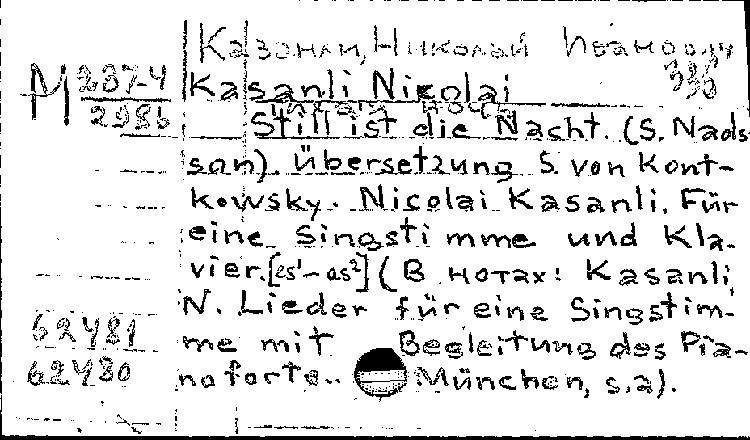 Казанли, Николай Иванович
М 237-4
2986
330
Kasanli Nicolai
Still ist die Nacht. (S. Nads-
son). Übersetzung S. von Kont-
kowsky. Nicolai Kasanli. Für
eine Singstimme und Kla-
vier.[es¹-as²] (В нотах: Kasanli,
N. Lieder für eine Singstim-
me mit Begleitung des Pia-
noforte.. München, s.a).
62481
62480